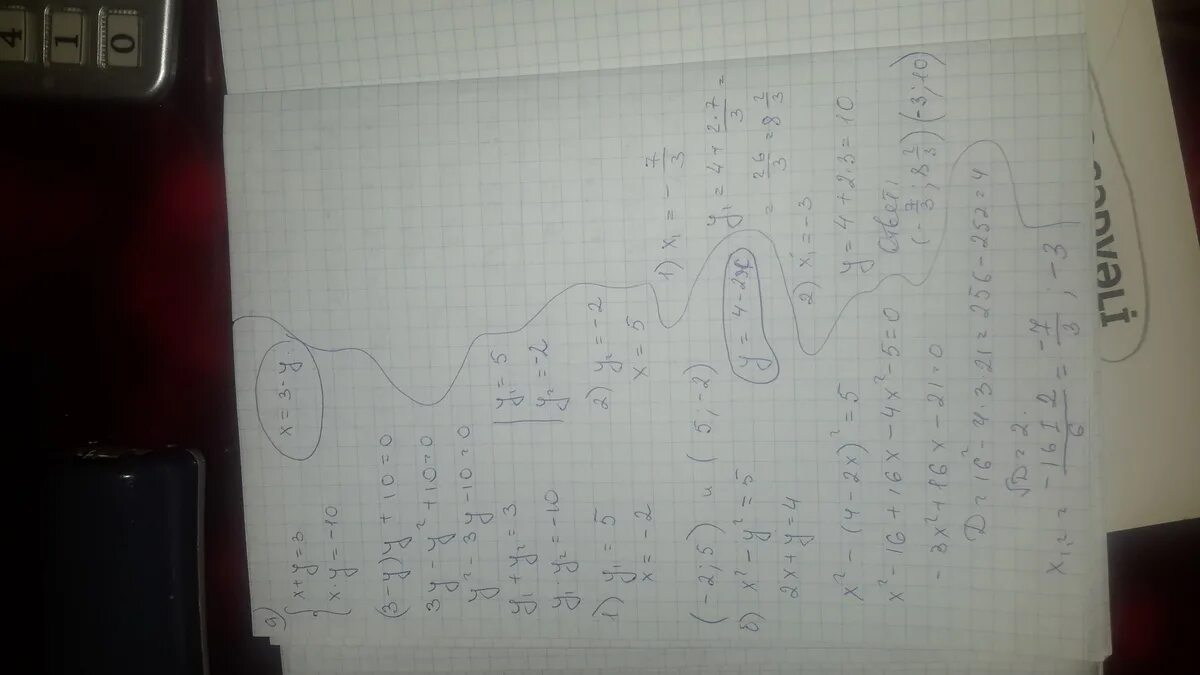 9) { x+y=3
x·y=-10
x=3-y.
(3-y)y+10=0
3y-y²+10=0
y²-3y-10=0
y₁+y₂=3
y₁·y₂=-10
y₁=5
y₂=-2
1) y₁=5
x=-2
2) y₂=-2
x=5
(-2;5) и (5;-2)
б) x²-y²=5
2x+y=4
y=4-2x
x²-(4-2x)²=5
x²-16+16x-4x²-5=0
-3x²+16x-21=0
D=16²-4·3·21=256-252=4
√D=2
x₁,₂= (-16±2)/6 = -7/3; -3
1) x₁=-7/3
y₁=4+2·7/3=
=26/3=8 2/3
2) x₁=-3
y=4+2·3=10
Ответ:
(-7/3; 8 2/3) (-3; 10)
4
1
0